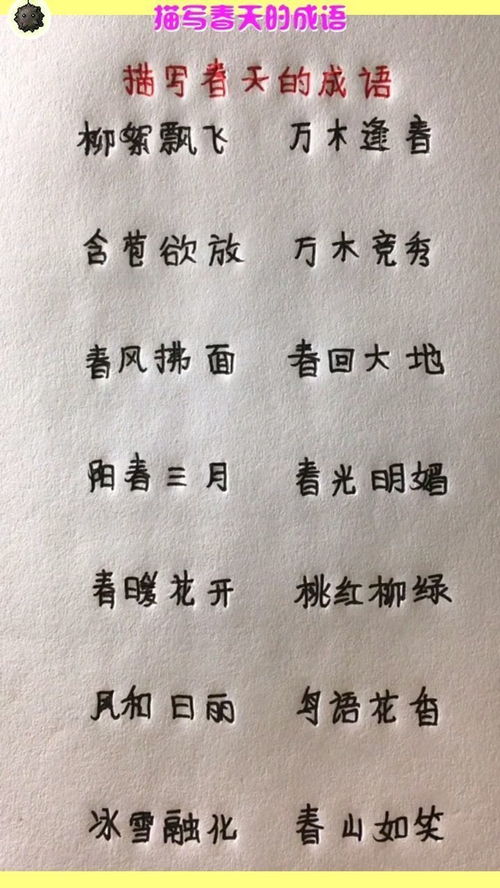 描写春天的成语
描写春天的成语
柳絮飘飞 万木逢春
含苞欲放 万木竞秀
春风拂面 春回大地
阳春三月 春光明媚
春暖花开 桃红柳绿
风和日丽 鸟语花香
冰雪融化 春山如笑